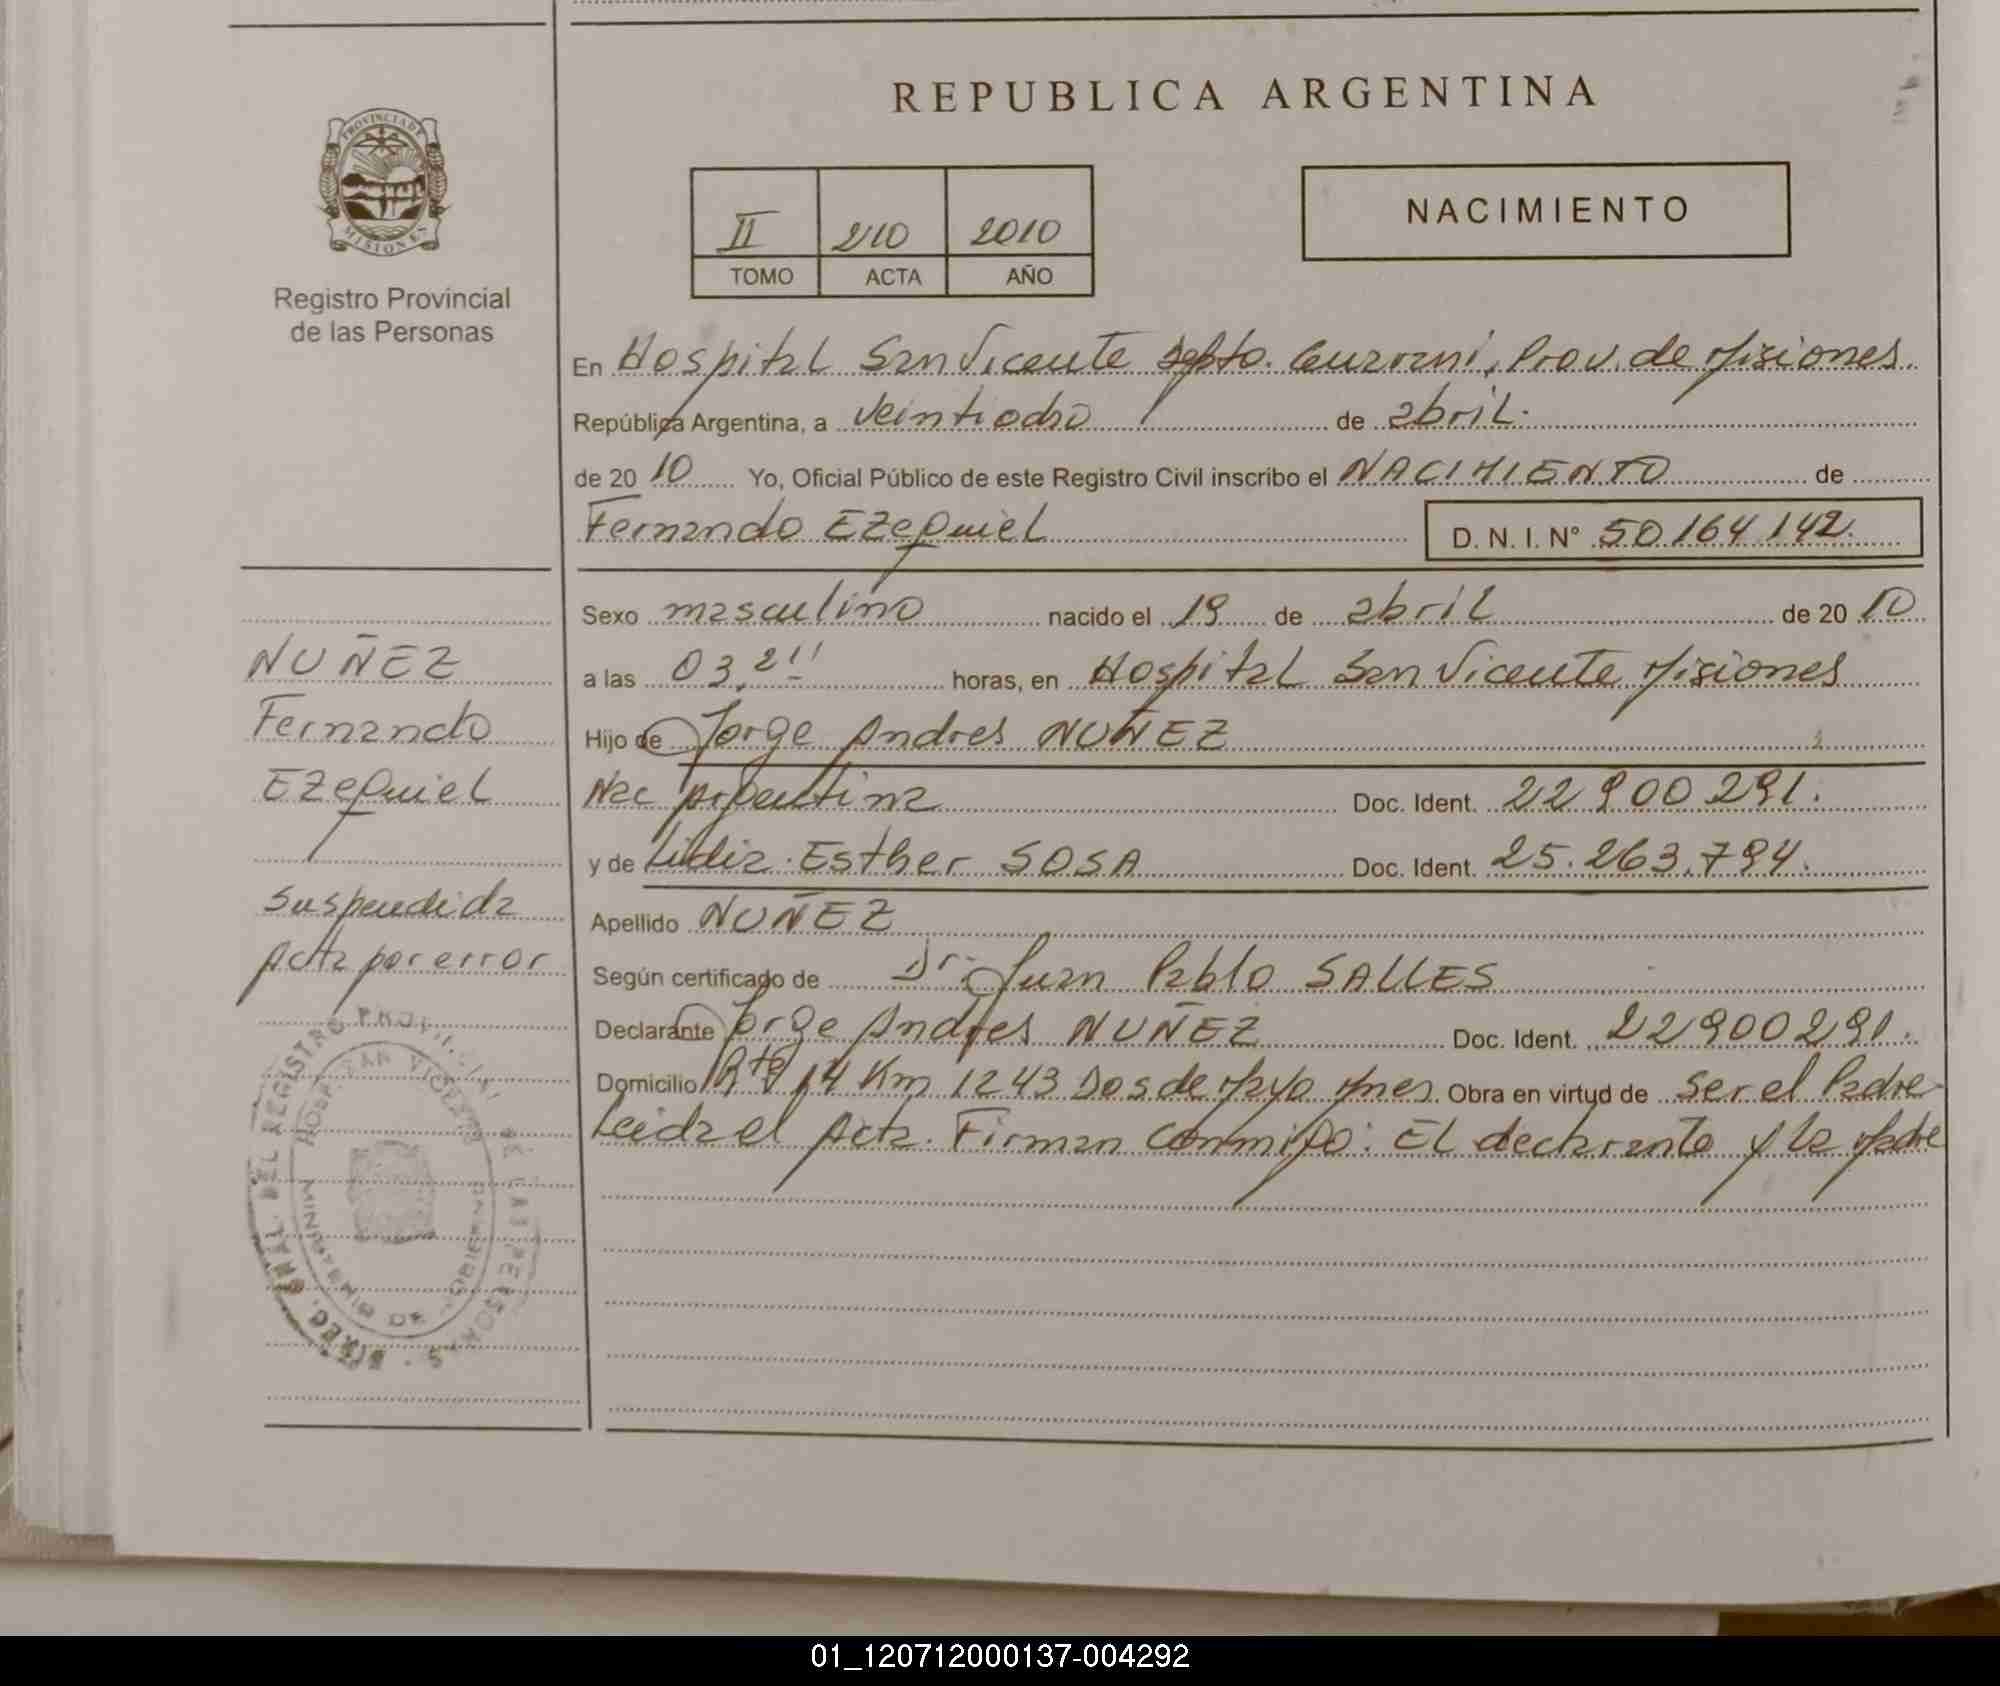 REPUBLICA ARGENTINA
PROVINCIA DE
MISIONES
Registro Provincial
de las Personas
II 210 2010
TOMO ACTA AÑO
NACIMIENTO
En Hospital San Vicente Depto. Guarani, Prov. de Misiones.
República Argentina, a veintiocho de abril.
de 20 10 Yo, Oficial Público de este Registro Civil inscribo el NACIMIENTO de
Fernando EZequiel D. N. I. N° 50.164.142.
Sexo masculino nacido el 19 de abril de 20 10
a las 03,211 horas, en Hospital San Vicente Misiones
Hijo de Jorge Andres NUÑEZ
Nac Argentina Doc. Ident. 22.900.291.
y de Lidia Esther SOSA Doc. Ident. 25.263.794.
Apellido NUÑEZ
Según certificado de Dr. Juan Pablo SALLES
Declarante Jorge Andres NUÑEZ Doc. Ident. 22900291.
Domicilio Rta 14 Km 1243 Dos de Mayo Mnes. Obra en virtud de ser el Padre
Leida el Acta. Firman Conmigo: El declarante y la Madre
NUÑEZ
Fernando
EZequiel
Suspendida
Acta por error
DIREC. GRAL. DEL REGISTRO PROVINCIAL DE LAS PERSONAS
HOSP. SAN VICENTE
MINISTERIO DE GOBIERNO
01_120712000137-004292